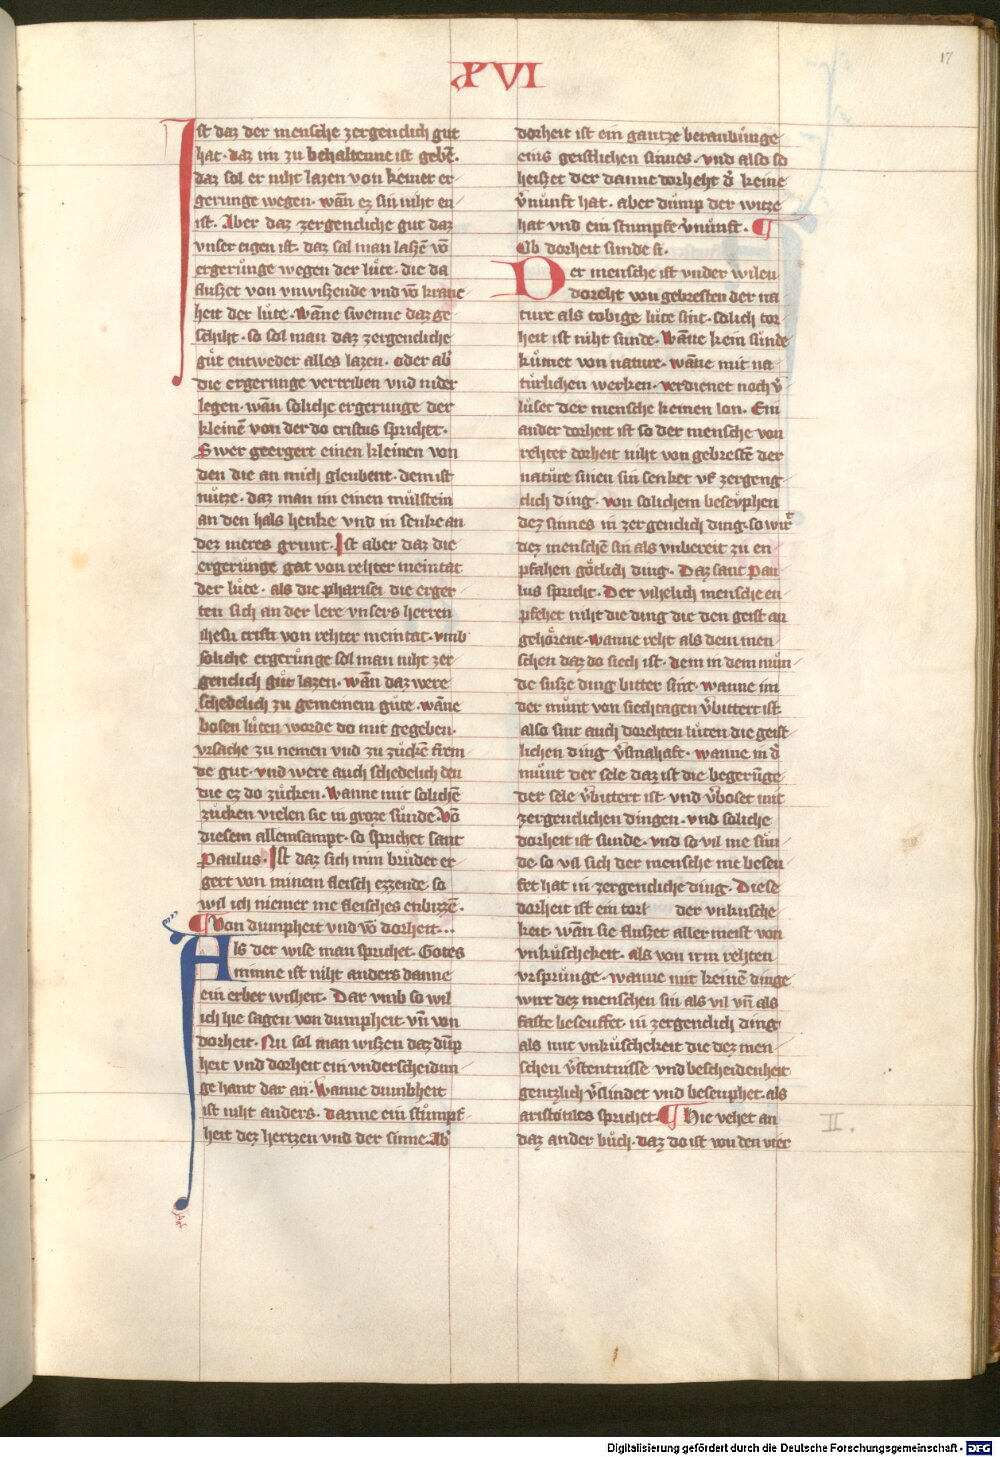 XVI
17
Ist daz der mensche zergenclich gut
hat · daz im zu behaltenne ist gebē ·
daz sol er niht lazen von keiner er-
gerunge wegen · wān ez sin niht en
ist · Aber daz zergencliche gut daz
vnser eigen ist · daz sal man lazē vō
ergerůnge wegen der lůte · die da
fluszet von vnwiszende vnd vō kranc
heit der lůte · wāne swenne daz ge
schiht · so sol man daz zergencliche
gůt entweder alles lazen · oder ab̓
die ergerunge vertriben vnd nider
legen · wān soliche ergerunge der
kleinē von der do cristus sprichet ·
Swer geergert einen kleinen von
den die an mich gleubent · dem ist
nůtze · daz man im einen můlstein
an den hals henke vnd in senke an
dez meres grunt · Ist aber daz die
ergerůnge gat von rehter meintat
der lůte · als die pharisei die erger
ten sich an der lere vnsers herren
ihesu cristi von rehter meintat · vmb
soliche ergerůnge sol man niht zer
genclich gůt lazen · wān daz were
schedelich zu gemeinem gůte · wāne
bosen lůten worde do mit gegeben ·
vrsache zu nemen vnd zu zůckē frem
de gut · vnd were auch schedelich den
die ez do zůcken · Wanne mit solichē
zůcken vielen sie in groze sůnde · Vō
diesem allemsampt · so sprichet sant
Paulus · Ist daz sich min brůder er
gert von minem fleisch ezzende · so
wil ich niemer me fleisches enbizzē ·
¶ Von dumpheit vnd vō dorheit ···
Als der wise man sprichet · Gotes
minne ist niht anders danne
ein erber wisheit · Dar vmb so wil
ich hie sagen von dumpheit vn̄ von
dorheit · Nu sol man wiszen daz dūp
heit vnd dorheit ein vnderscheidun
ge hant dar an · Wanne dumbheit
ist niht anders · danne ein stůmpf
heit dez hertzen vnd der sinne · Ab̓
dorheit ist ein gantze beraubůnge
eins geistlichen sinnes · vnd also so
heiszet der danne dorheht d̓ keine
v̓nůnft hat · aber důmp der witze
hat vnd ein stumpfe v̓nůnft · ¶
Ob dorheit sunde si ·
Der mensche ist vnder wilen
doreht von gebresten der na
ture als tobige lůte sint · solich tor
heit ist niht sunde · Wāne kein sůnde
kůmet von nature · wāne mit na
tůrlichen werken · verdienet noch v̓
lůset der mensche keinen lon · Ein
ander dorheit ist so der mensche von
rehter dorheit niht von gebrestē der
natůre sinen sin senket vf zergeng
clich ding · von solichem besevphen
dez sinnes in zergenclich ding · so wirt
dez menschē sin als vnbereit zu en
pfahen gőtlich ding · Daz sant Pau
lus spricht · Der vihelich mensche en
pfehet niht die ding die den geist an
gehőrent · wanne reht als dem men
schen daz do siech ist · dem in dem mun
de susze ding bitter sint · wanne im
der můnt von siechtagen v̓bittert ist
also sint auch dorehten lůten die geist
lichen ding v̓smahaft · wanne in d̓
můnt der sele daz ist die begerūge
der sele v̓bittert ist vnd v̓boset mit
zergenclichen dingen · vnd soliche
dorheit ist sunde · vnd so vil me sůn
de · so vil sich der mensche me beseu
fet hat in zergencliche ding · Diese
dorheit ist ein der vnkusche
keit · wān sie fluszet aller meist von
vnkůschekeit · als von irm rehten
vrsprůnge · wanne mit keinē dinge
wirt dez menschen sin als vil vn̄ als
faste beseuffet · in zergenclich ding
als mit vnkůschekeit die dez men
schen v̓stentnisse vnd bescheidenheit
gentzlich v̓slindet vnd beseuphet · als
aristotiles sprichet · ¶ Hie vehet an
daz ander bůch · daz do ist von den vier
II .
Digitalisierung gefördert durch die Deutsche Forschungsgemeinschaft - DFG